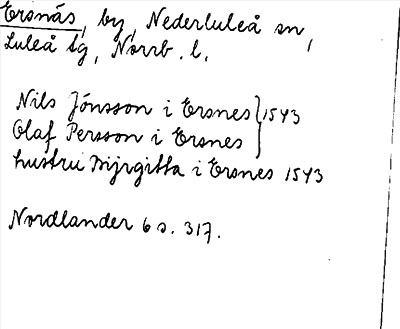 Ersnäs, by, Nederluleå sn,
Luleå tg, Norrb. l.
Nils Jönsson i Ersnes } 1543
Olaf Persson i Ersnes
hustru Birgitta i Ersnes 1543
Nordlander 6 s. 317.